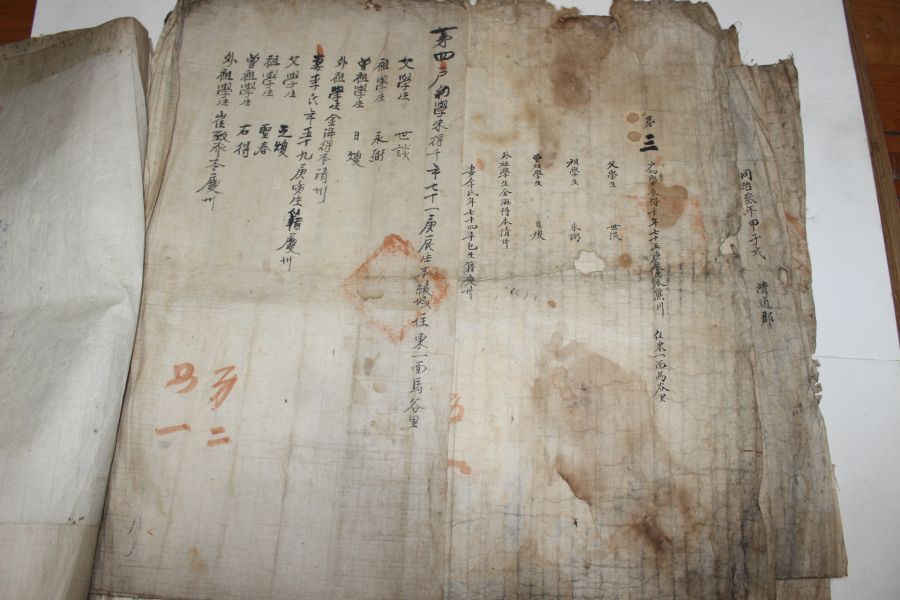 同治參年甲子式 淸道郡
第三
幼學朱得千年七十五庚辰生本綾州 住東一面馬谷里
父學生 世談
祖學生 永弼
曾祖學生 日煥
外祖學生金海得本淸州
妻李氏年七十四辛巳生籍慶州
第四戶幼學朱得千年七十一庚辰生本綾城住東一面馬谷里
父學生 世談
祖學生 永弼
曾祖學生 日煥
外祖學生金海得本淸州
妻李氏年五十九庚 生籍慶州
父學生 煥
祖學生 重春
曾祖學生 右得
外祖學生崔致 本慶州
口二
口一